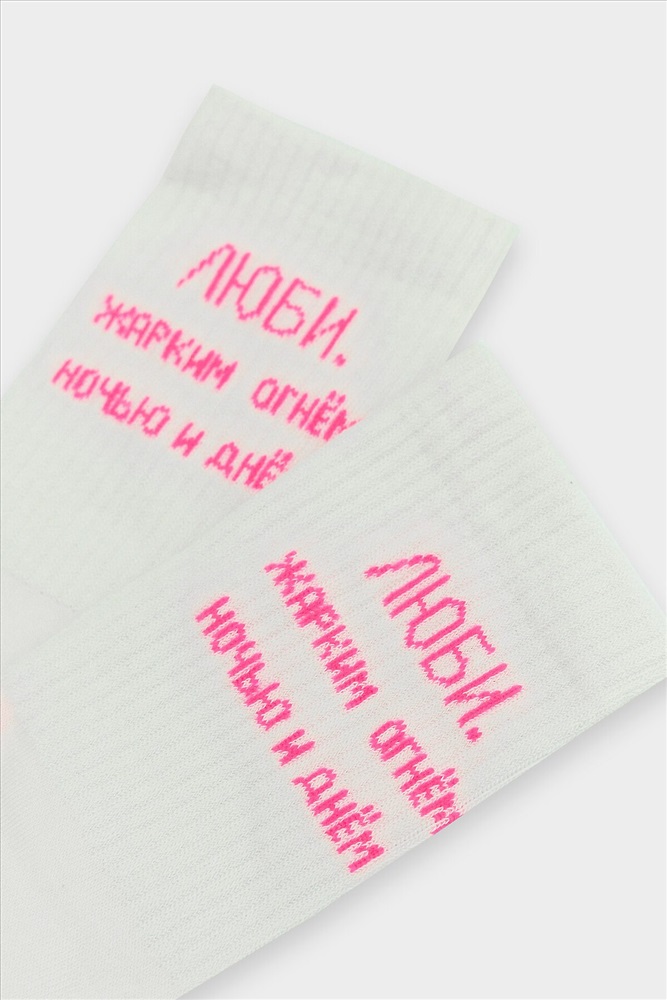 ЛЮБИ.
ЖАРКИМ ОГНЁМ
НОЧЬЮ И ДНЁ
ЛЮБИ.
ЖАРКИМ ОГНЁМ
НОЧЬЮ И ДНЁМ